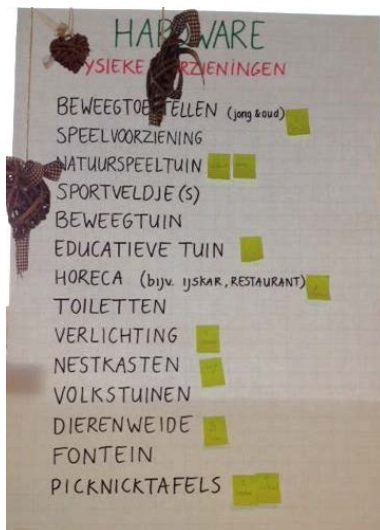 HARDWARE
FYSIEKE VOORZIENINGEN
BEWEEGTOESTELLEN (jong & oud)
SPEELVOORZIENING
NATUURSPEELTUIN
SPORTVELDJE(S)
BEWEEGTUIN
EDUCATIEVE TUIN
HORECA (bijv. IJSKAR, RESTAURANT)
TOILETTEN
VERLICHTING
NESTKASTEN
VOLKSTUINEN
DIERENWEIDE
FONTEIN
PICKNICKTAFELS